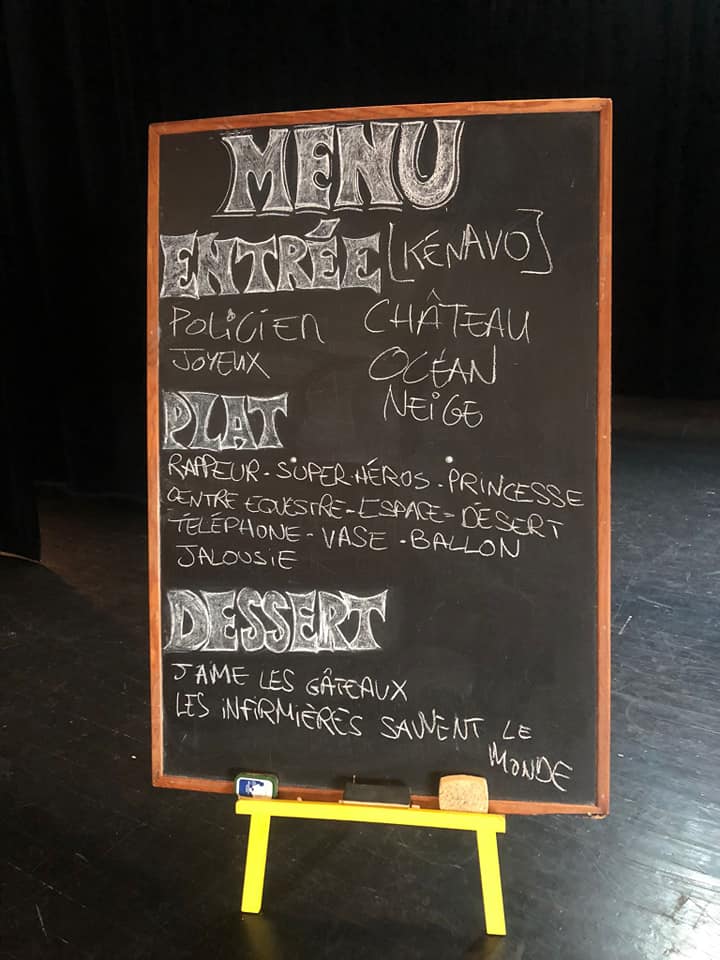 MENU
ENTRÉE [KÉNAVO]
POLICIER CHÂTEAU
JOYEUX OCÉAN
NEIGE
PLAT
RAPPEUR - SUPER-HÉROS - PRINCESSE
CENTRE EQUESTRE - ESPACE - DÉSERT
TÉLÉPHONE - VASE - BALLON
JALOUSIE
DESSERT
J'AIME LES GÂTEAUX
LES INFIRMIÈRES SAUVENT LE
MONDE